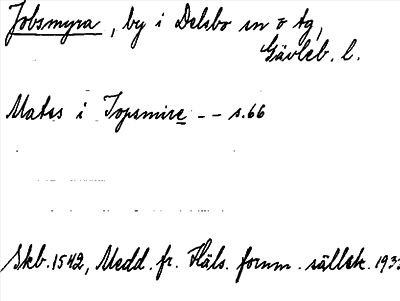 Jobsmyra, by i Delsbo sn o tg,
Gävleb. l.
Mates i Jopsmire -- s. 66
Skb. 1542, Medd. fr. Häls. fornm. sällsk. 193